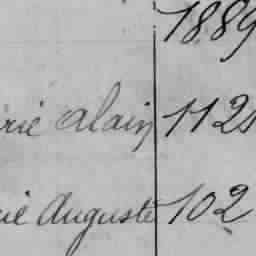 1889
rie Alain 112
rie Auguste 102